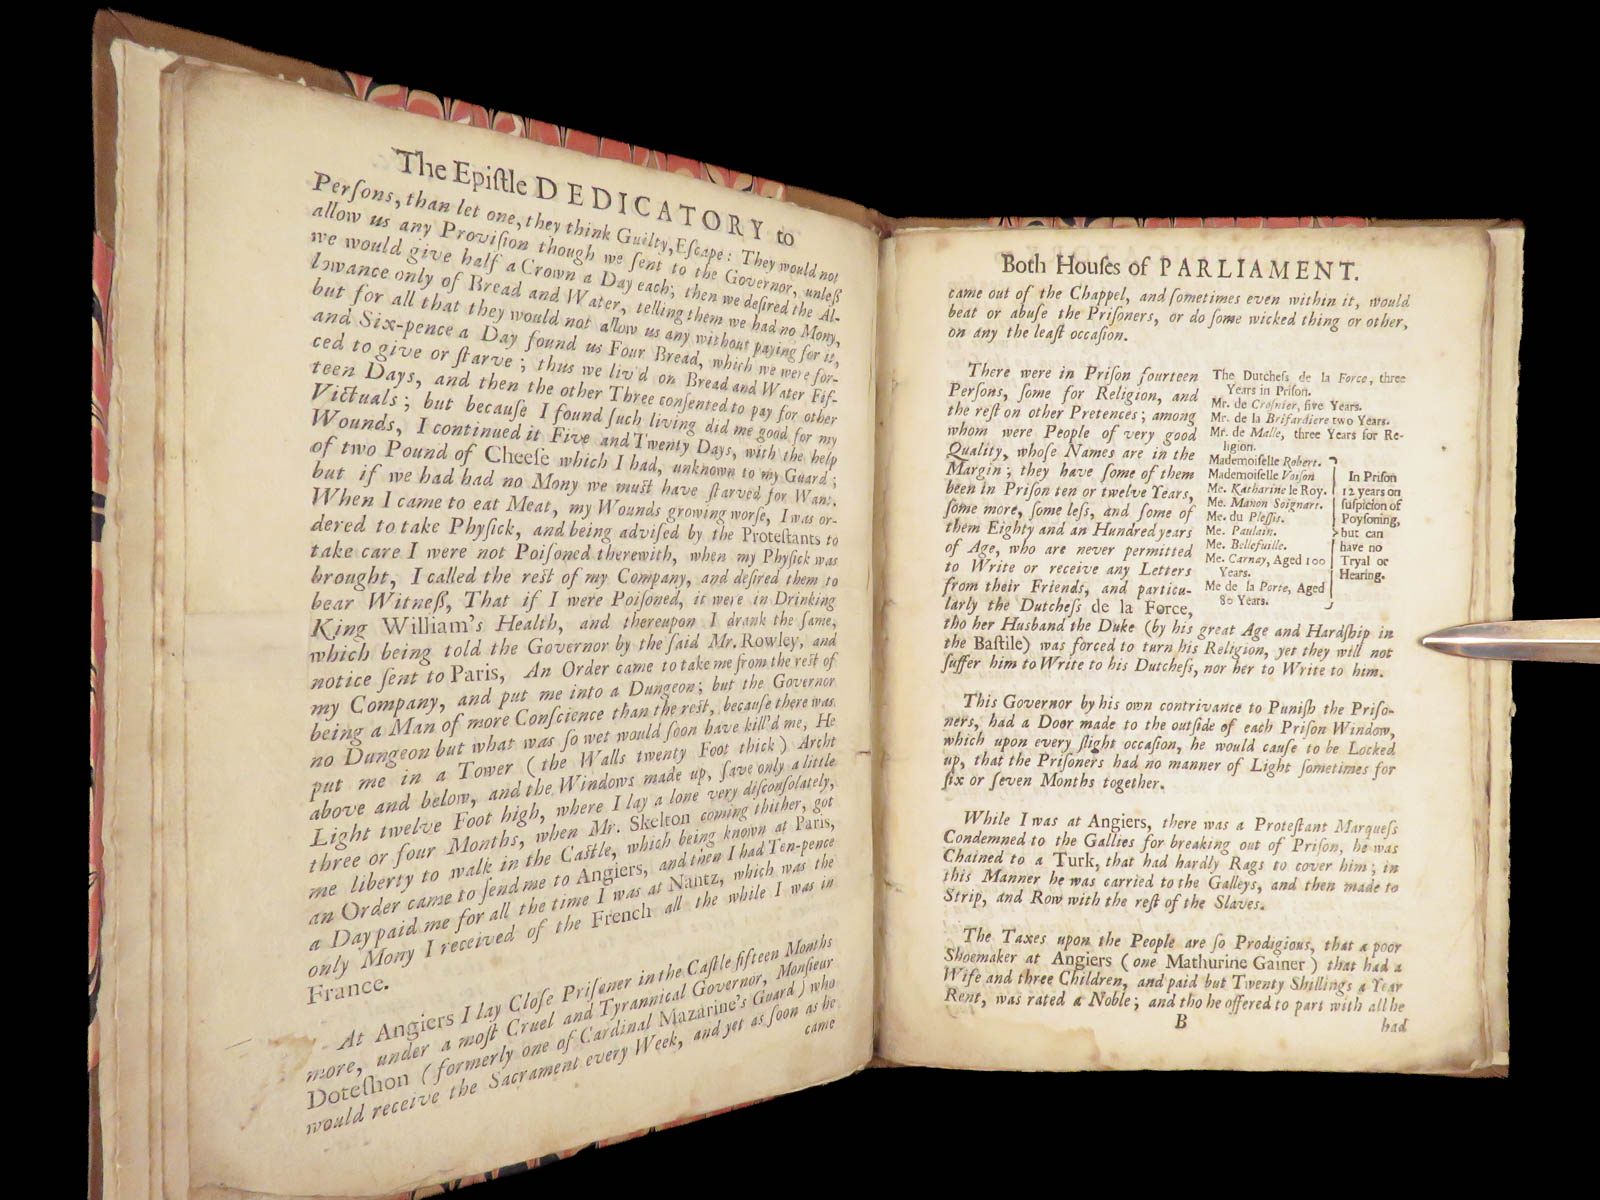 The Epiſtle DEDICATORY to
Perſons, than let one, they think Guilty, Eſcape: They would not
allow us any Proviſion though we ſent to the Governor, unleſs
we would give half a Crown a Day each; then we deſired the Al-
lowance only of Bread and Water, telling them we had no Mony,
but for all that they would not allow us any without paying for it,
and Six-pence a Day found us Four Bread, which we were for-
ced to give or ſtarve; thus we liv'd on Bread and Water Fif-
teen Days, and then the other Three conſented to pay for other
Victuals; but becauſe I found ſuch living did me good for my
Wounds, I continued it Five and Twenty Days, with the help
of two Pound of Cheeſe which I had, unknown to my Guard;
but if we had had no Mony we muſt have ſtarved for Want.
When I came to eat Meat, my Wounds growing worſe, I was or-
dered to take Phyſick, and being adviſed by the Proteſtants to
take care I were not Poiſoned therewith, when my Phyſick was
brought, I called the reſt of my Company, and deſired them to
bear Witneſs, That if I were Poiſoned, it were in Drinking
King William's Health, and thereupon I drank the ſame,
which being told the Governor by the ſaid Mr. Rowley, and
notice ſent to Paris, An Order came to take me from the reſt of
my Company, and put me into a Dungeon; but the Governor
being a Man of more Conſcience than the reſt, becauſe there was
no Dungeon but what was ſo wet would ſoon have kill'd me, He
put me in a Tower (the Walls twenty Foot thick) Archt
above and below, and the Windows made up, ſave only a little
Light twelve Foot high, where I lay a lone very diſconſolately,
three or four Months, when Mr. Skelton coming thither, got
me liberty to walk in the Caſtle, which being known at Paris,
an Order came to ſend me to Angiers, and then I had Ten-pence
a Day paid me for all the time I was at Nantz, which was the
only Mony I received of the French all the while I was in
France.
At Angiers I lay Cloſe Priſoner in the Caſtle fifteen Months
more, under a moſt Cruel and Tyrannical Governor, Monſieur
Doteſhon (formerly one of Cardinal Mazarine's Guard) who
would receive the Sacrament every Week, and yet as ſoon as he
came
Both Houſes of PARLIAMENT.
came out of the Chappel, and ſometimes even within it, would
beat or abuſe the Priſoners, or do ſome wicked thing or other,
on any the leaſt occaſion.
There were in Priſon fourteen
Perſons, ſome for Religion, and
the reſt on other Pretences; among
whom were People of very good
Quality, whoſe Names are in the
Margin; they have ſome of them
been in Priſon ten or twelve Years,
ſome more, ſome leſs, and ſome of
them Eighty and an Hundred years
of Age, who are never permitted
to Write or receive any Letters
from their Friends, and particu-
larly the Dutcheſs de la Force,
tho her Husband the Duke (by his great Age and Hardſhip in
the Baſtile) was forced to turn his Religion, yet they will not
ſuffer him to Write to his Dutcheſs, nor her to Write to him.
The Dutcheſs de la Force, three
Years in Priſon.
Mr. de Croſnier, five Years.
Mr. de la Briſardiere two Years.
Mr. de Malle, three Years for Re-
ligion.
Mademoiſelle Robert.
Mademoiſelle Voiſon
Me. Katharine le Roy.
Me. Manon Soignart.
Me. du Pleſſis.
Me. Paulain.
Me. Bellefuille.
Me. Carnay, Aged 100
Years.
Me de la Porte, Aged
80 Years.
In Priſon
12 years on
ſuſpicion of
Poyſoning,
but can
have no
Tryal or
Hearing.
This Governor by his own contrivance to Puniſh the Priſo-
ners, had a Door made to the outſide of each Priſon Window,
which upon every ſlight occaſion, he would cauſe to be Locked
up, that the Priſoners had no manner of Light ſometimes for
ſix or ſeven Months together.
While I was at Angiers, there was a Proteſtant Marqueſs
Condemned to the Gallies for breaking out of Priſon, he was
Chained to a Turk, that had hardly Rags to cover him; in
this Manner he was carried to the Galleys, and then made to
Strip, and Row with the reſt of the Slaves.
The Taxes upon the People are ſo Prodigious, that a poor
Shoemaker at Angiers (one Mathurine Gainer) that had a
Wife and three Children, and paid but Twenty Shillings a Year
Rent, was rated a Noble; and tho he offered to part with all he
B
had